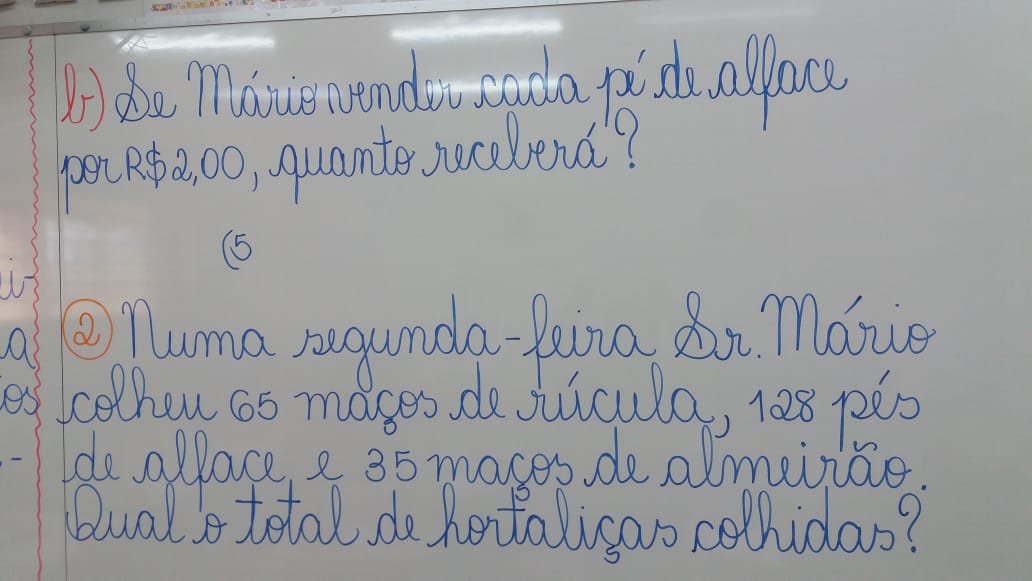 b) Se Mário vender cada pé de alface
por R$2,00, quanto receberá?
(5
2 Numa segunda-feira Sr. Mário
colheu 65 maços de rúcula, 128 pés
de alface e 35 maços de almeirão.
Qual o total de hortaliças colhidas?